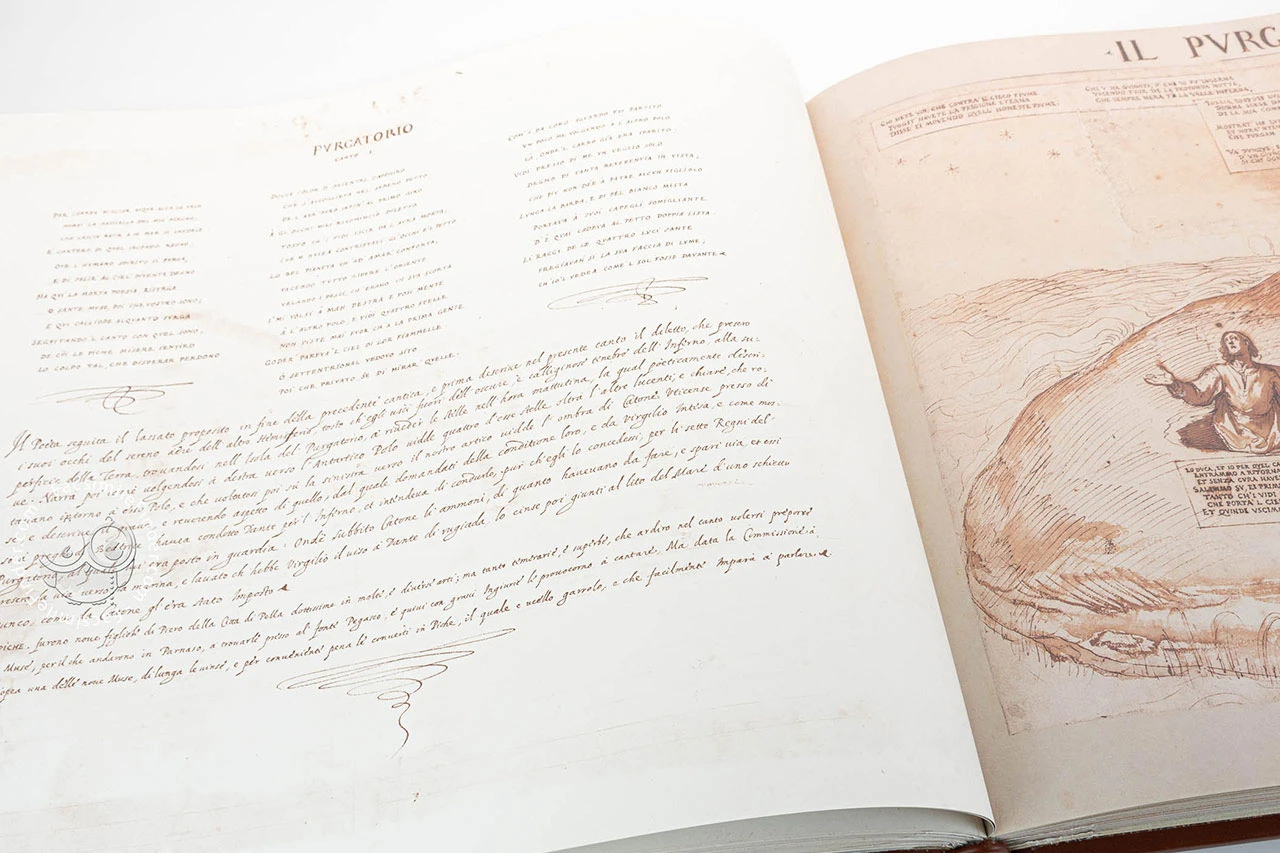 PVRGATORIO
CANTO I.
PER CORRER MIGLIOR ACQUA ALZA LE VELE
HOMAI LA NAVICELLA DEL MIO INGEGNO,
CHE LASCIA DIETRO A SE MAR SI CRUDELE
E CANTERO DI QUEL SECONDO REGNO;
OVE L'HUMANO SPIRITO SI PURGA,
E DI SALIR AL CIEL DIVENTA DEGNO
MA QUI LA MORTA POESIA RISURGA
O SANTE MUSE, POI CHE VOSTRO SONO;
E QUI CALLIOPE ALQUANTO SURGA
SEGUITANDO'L CANTO CON QUEL SONO,
DI CHI LE PICHE MISERE SENTIRO
LO COLPO TAL, CHE DISPERAR PERDONO
DOLCE COLOR D'ORIENTAL ZAPHIRO
CHE S'ACCOGLIEVA NEL SERENO
DE L'AER PURO INFIN' AL PRIMO GIRO
A GLI OCCHI MIEI RICOMINCIO DILETTO
TOSTO CH'I' VSCI FUOR DE L'AURA MORTA;
CHE M'HAVEA CONTRISTATI GLI OCCHI E'L PETTO
LO BEL PIANETA CH'AD AMAR CONFORTA,
FACENDO TUTTO RIDER L'ORIENTE
VELANDO I PESCI, CH'ERANO IN SUA SCORTA
I' MI VOLSI A MAN DESTRA E POSI MENTE
A L'ALTRO POLO, E VIDI QUATTRO STELLE
NON VISTE MAI FUOR CH'A LA PRIMA GENTE
GODER PAREVA'L CIEL DI LOR FIAMMELLE
O SETTENTRIONAL VEDOVO SITO
POI CHE PRIVATO SE' DI MIRAR QUELLE.
COM'I' DA LORO SGUARDO FUI PARTITO
VN POCO ME VOLGENDO A L'ALTRO POLO
LÀ, ONDE'L CARRO GIÀ ERA SPARITO;
VIDI PRESSO DI ME VN VEGLIO SOLO
DEGNO DI TANTA REVERENTIA IN VISTA;
CHE PIV NON DEE A PADRE ALCUN FIGLIOLO
LUNGA LA BARBA, E DI PEL BIANCO MISTA
PORTAVA A SVOI CAPEGLI SIMIGLIANTE
DE QUAI CADEVA AL PETTO DOPPIA LISTA.
LI RAGGI DE LE QUATTRO LUCI SANTE
FREGIAVAN SI LA SUA FACCIA DI LUME;
CH'IO'L VEDEA COME'L SOL FOSSE DAVANTE
Il Poeta seguita il lassato proposito in fine della precedente cantica, e prima discrive nel presente canto il diletto, che presero
i suoi occhi del sereno aere dell'altro Hemisfero, tosto ch'egli uscì fuori dell'oscure, e calliginose tenebre dell'Inferno, alla su-
perficie della Terra, trovandosi nell'Isola del Purgatorio, a riveder le stelle nell'hora mattutina, la qual poeticamente discri-
ve. Narra poi volgendosi à destra verso l'Antartico Polo vidde quattro stelle oltra l'altre lucenti, e chiare, che ro-
tavano intorno a esso Polo, e che voltatosi poi su la sinistra verso il nostro artico vidde l'ombra di Catone Vticense presso di
se, e descrive il grave, e reverendo aspetto di quello, dal quale domandati della conditione loro, e da Virgilio intesa, e come mos-
so a preghi di Beatrice haveva condotto Dante per l'Inferno, et intendeva di condurlo, pur ch'egli lo concedessi, per li sette Regni del
Purgatorio, al quale era posto in guardia. Onde subbito Catone li ammonì, di quanto havevano da fare, e sparì via, et essi
presero la via verso la marina, e lavato ch'hebbe Virgilio il viso a Dante di rugiada, lo cinse poi giunti al lito del Mare d'uno schietto
iunco, come da Catone gl'era stato imposto
PICHE. furono nove figliole di Piero della Città di Pella dottissime in molte, e diverse arti; ma tanto temerarie, e superbe, che ardiro nel canto volersi preporre
Muse, per il che andarono in Parnaso, a trovarle presso al fonte Pegaseo, e quivi con gravi Ingiurie le provocorno a cantare. Ma data la Commissione à
una delle nove Muse, di lunga le vinse, e per conveniente pena le convertì in Piche, il quale e ucello garrolo, e che facilmente impara a parlare.
IL PVRG
CHI SIETE VOI; CHE CONTRA'L CIECO FIUME
FUGGIT' HAVETE LA PRIGIONE ETERNA
DISSE EI MOVENDO QUELL'HONESTE PIUME;
CHI V'HA GUIDATI, O CHI VI FU LUCERNA
VSCENDO FUOR DE LA PROFONDA NOTTE,
CHE SEMPRE NERA FA LA VALLE INFERNA,
MOSTRAT' HO LUI
CHE PURGAN
LO DUCA, ET IO PER QUEL CA
ENTRAMMO A RITORNA
ET SENZA CURA HAVE
SALIMMO SV, EI PRIM
TANTO CH'I VIDI
CHE PORTA'L CIE
ET QUINDI VSCIM